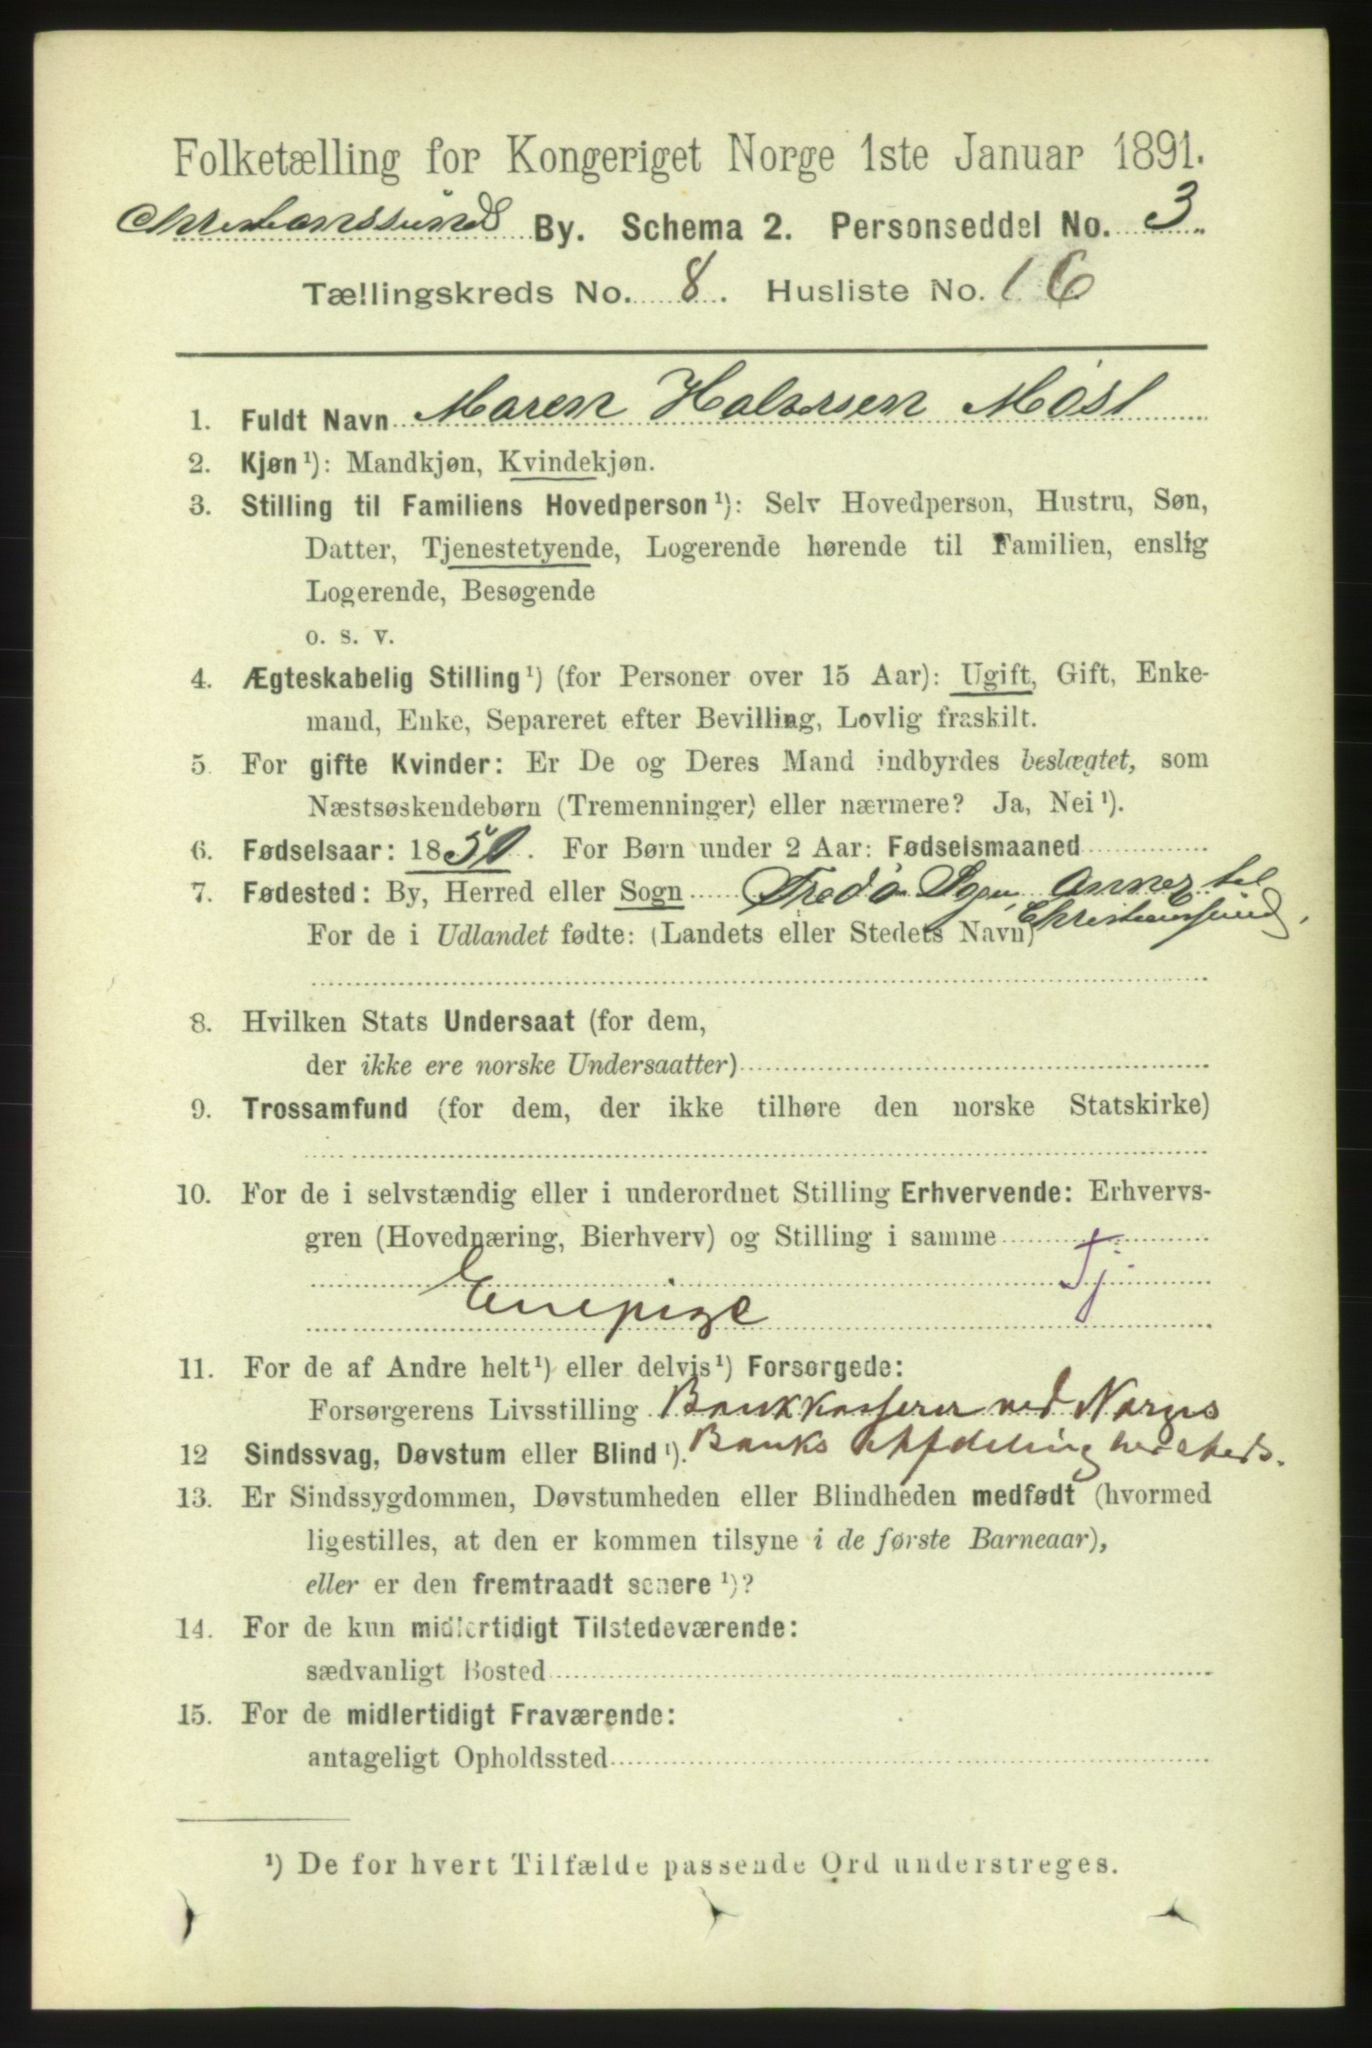 Folketælling for Kongeriget Norge 1ste Januar 1891.
Christianssund By. Schema 2. Personseddel No. 3.
Tællingskreds No. 8. Husliste No. 16
1. Fuldt Navn Maren Halvorsen Møst
2. Kjøn ¹): Mandkjøn, Kvindekjøn.
3. Stilling til Familiens Hovedperson ¹): Selv Hovedperson, Hustru, Søn,
Datter, Tjenestetyende, Logerende hørende til Familien, enslig
Logerende, Besøgende
o. s. v.
4. Ægteskabelig Stilling ¹) (for Personer over 15 Aar): Ugift, Gift, Enke-
mand, Enke, Separeret efter Bevilling, Lovlig fraskilt.
5. For gifte Kvinder: Er De og Deres Mand indbyrdes beslægtet, som
Næstsøskendebørn (Tremenninger) eller nærmere? Ja, Nei ¹).
6. Fødselsaar: 1850. For Børn under 2 Aar: Fødselsmaaned
7. Fødested: By, Herred eller Sogn Fredø Sogn, Annex til
Christianssund.
For de i Udlandet fødte: (Landets eller Stedets Navn)
8. Hvilken Stats Undersaat (for dem,
der ikke ere norske Undersaatter)
9. Trossamfund (for dem, der ikke tilhøre den norske Statskirke)
10. For de i selvstændig eller i underordnet Stilling Erhvervende: Erhvervs-
gren (Hovednæring, Bierhverv) og Stilling i samme
Tj.
Enepige
11. For de af Andre helt ¹) eller delvis ¹) Forsørgede:
Forsørgerens Livsstilling Bankkasserer ved Norges
12 Sindssvag, Døvstum eller Blind ¹). Banks Afdeling her
13. Er Sindssygdommen, Døvstumheden eller Blindheden medfødt (hvormed
ligestilles, at den er kommen tilsyne i de første Barneaar),
eller er den fremtraadt senere ¹)?
14. For de kun midlertidigt Tilstedeværende:
sædvanligt Bosted
15. For de midlertidigt Fraværende:
antageligt Opholdssted
¹) De for hvert Tilfælde passende Ord understreges.